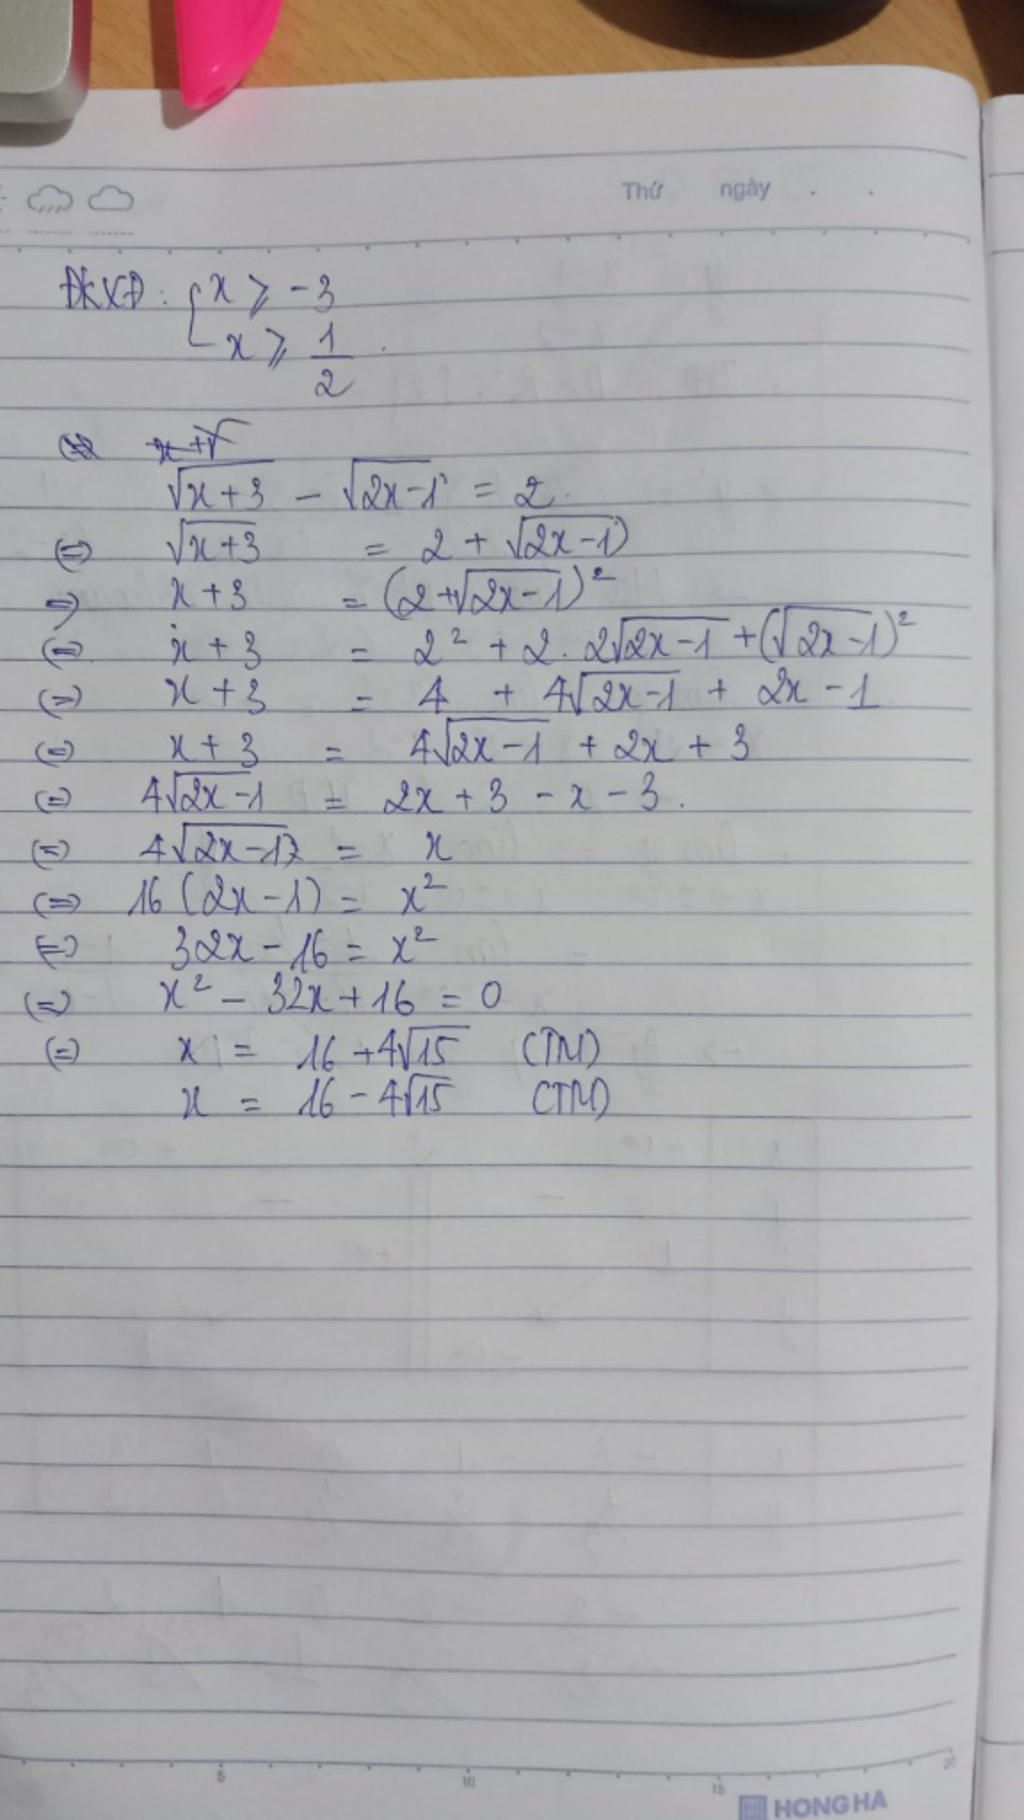 Thứ ngày . .
ĐKXĐ: { x ⩾ -3
x ⩾ 1/2 .
x + √
√x+3 - √2x-1 = 2.
(=) √x+3 = 2 + √2x-1
=) x+3 = (2+√2x-1)²
(=) x+3 = 2² + 2. 2√2x-1 + (√2x-1)²
(=) x+3 = 4 + 4√2x-1 + 2x - 1
(=) x+3 = 4√2x-1 + 2x + 3
(=) 4√2x-1 = 2x + 3 - x - 3.
(=) 4√2x-1 = x
(=) 16 (2x-1) = x²
(=) 32x - 16 = x²
(=) x² - 32x + 16 = 0
(=) x = 16 + 4√15 (TM)
x = 16 - 4√15 (TM)
5 10 15 20
HONG HA